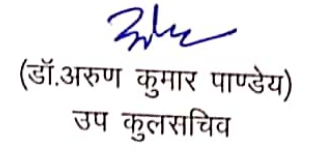 (डॉ.अरुण कुमार पाण्डेय)
उप कुलसचिव